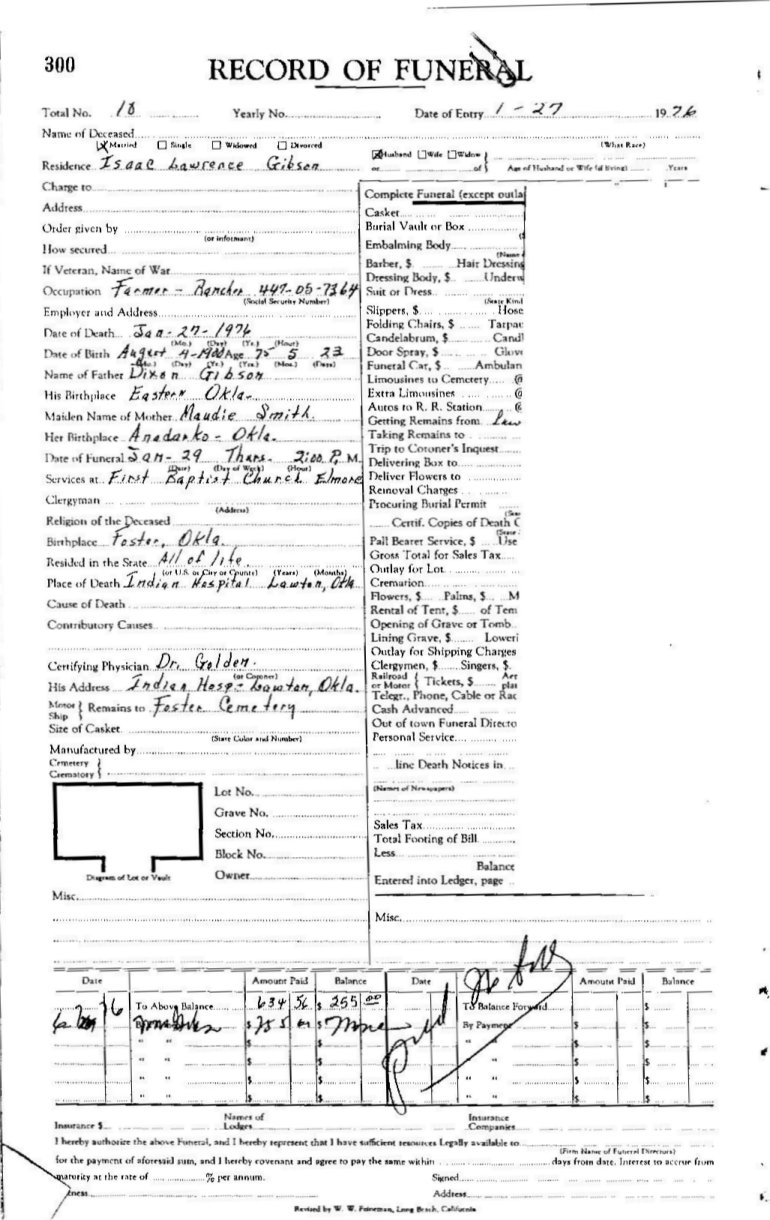 300
RECORD OF FUNERAL
Total No. 18 Yearly No. Date of Entry 1-27 1976
Name of Deceased (What Race)
Married Single Widowed Divorced
Husband Wife Widow
Residence Isaac Lawrence Gibson or of Age of Husband or Wife (if living) Years
Charge to
Address
Order given by
(or informant)
How secured
If Veteran, Name of War
Occupation Farmer - Rancher 447-05-7364
(Social Security Number)
Employer and Address
Date of Death Jan-27-1976
(Mo.) (Day) (Yr.) (Hour)
Date of Birth August 4-1900 Age 75 5 23
(Mo.) (Day) (Yr.) (Yrs.) (Mos.) (Days)
Name of Father Dixon Gibson
His Birthplace Eastern Okla.
Maiden Name of Mother Maudie Smith.
Her Birthplace Anadarko - Okla.
Date of Funeral Jan-29 Thurs. 2:00 P.M.
(Date) (Day of Week) (Hour)
Services at First Baptist Church Elmore
Clergyman
(Address)
Religion of the Deceased
Birthplace Foster, Okla.
Resided in the State All of life.
(or U.S. or City or County) (Years) (Months)
Place of Death Indian Hospital Lawton, Okla
Cause of Death
Contributory Causes
Certifying Physician Dr. Golden.
(or Coroner)
His Address Indian Hosp- Lawton, Okla.
Motor Ship Remains to Foster Cemetery
Size of Casket
(State Color and Number)
Manufactured by
Cemetery
Crematory
Lot No.
Grave No.
Section No.
Block No.
Owner
Diagram of Lot or Vault
Misc.
Complete Funeral (except outla
Casket
Burial Vault or Box
Embalming Body
(Name
Barber, $ Hair Dressing
Dressing Body, $ Underw
Suit or Dress
(State Kind
Slippers, $ Hose
Folding Chairs, $ Tarpau
Candelabrum, $ Candl
Door Spray, $ Glove
Funeral Car, $ Ambulan
Limousines to Cemetery @
Extra Limousines @
Autos to R. R. Station @
Getting Remains from Law
Taking Remains to
Trip to Coroner's Inquest
Delivering Box to
Deliver Flowers to
Removal Charges
Procuring Burial Permit
Certif. Copies of Death C
Pall Bearer Service, $ Use
Gross Total for Sales Tax
Outlay for Lot
Cremation
Flowers, $ Palms, $ M
Rental of Tent, $ of Tem
Opening of Grave or Tomb
Lining Grave, $ Loweri
Outlay for Shipping Charges
Clergymen, $ Singers, $
Railroad or Motor Tickets, $ Aer plan
Telegr., Phone, Cable or Rad
Cash Advanced
Out of town Funeral Directo
Personal Service
line Death Notices in
(Names of Newspapers)
Sales Tax
Total Footing of Bill
Less
Balance
Entered into Ledger, page
Misc.
Date Amount Paid Balance Date Amount Paid Balance
To Above Balance 634 56 $ 255 00 To Balance Forward $
76 $ 255 $ None By Payment $
" " $ $ " " $
" " $ $ " " $
" " $ $ " " $
" " $ $ " " $
Paid
Insurance $ Names of Lodges Insurance Companies
I hereby authorize the above Funeral, and I hereby represent that I have sufficient resources Legally available to
(Firm Name of Funeral Directors)
for the payment of aforesaid sum, and I hereby covenant and agree to pay the same within days from date. Interest to accrue from
maturity at the rate of % per annum. Signed
tness Address
Revised by W. W. Feineman, Long Beach, California